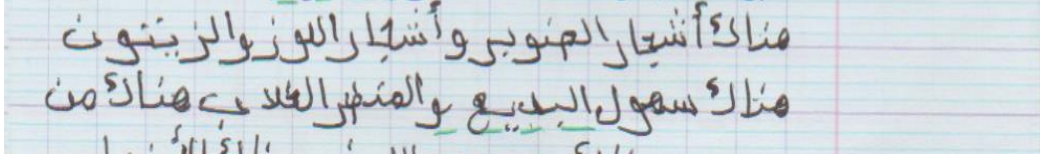 هناك أشجار الصنوبر وأشجار اللوز والزيتون
هناك سهول البديع والمنظر الخلاب هناك من